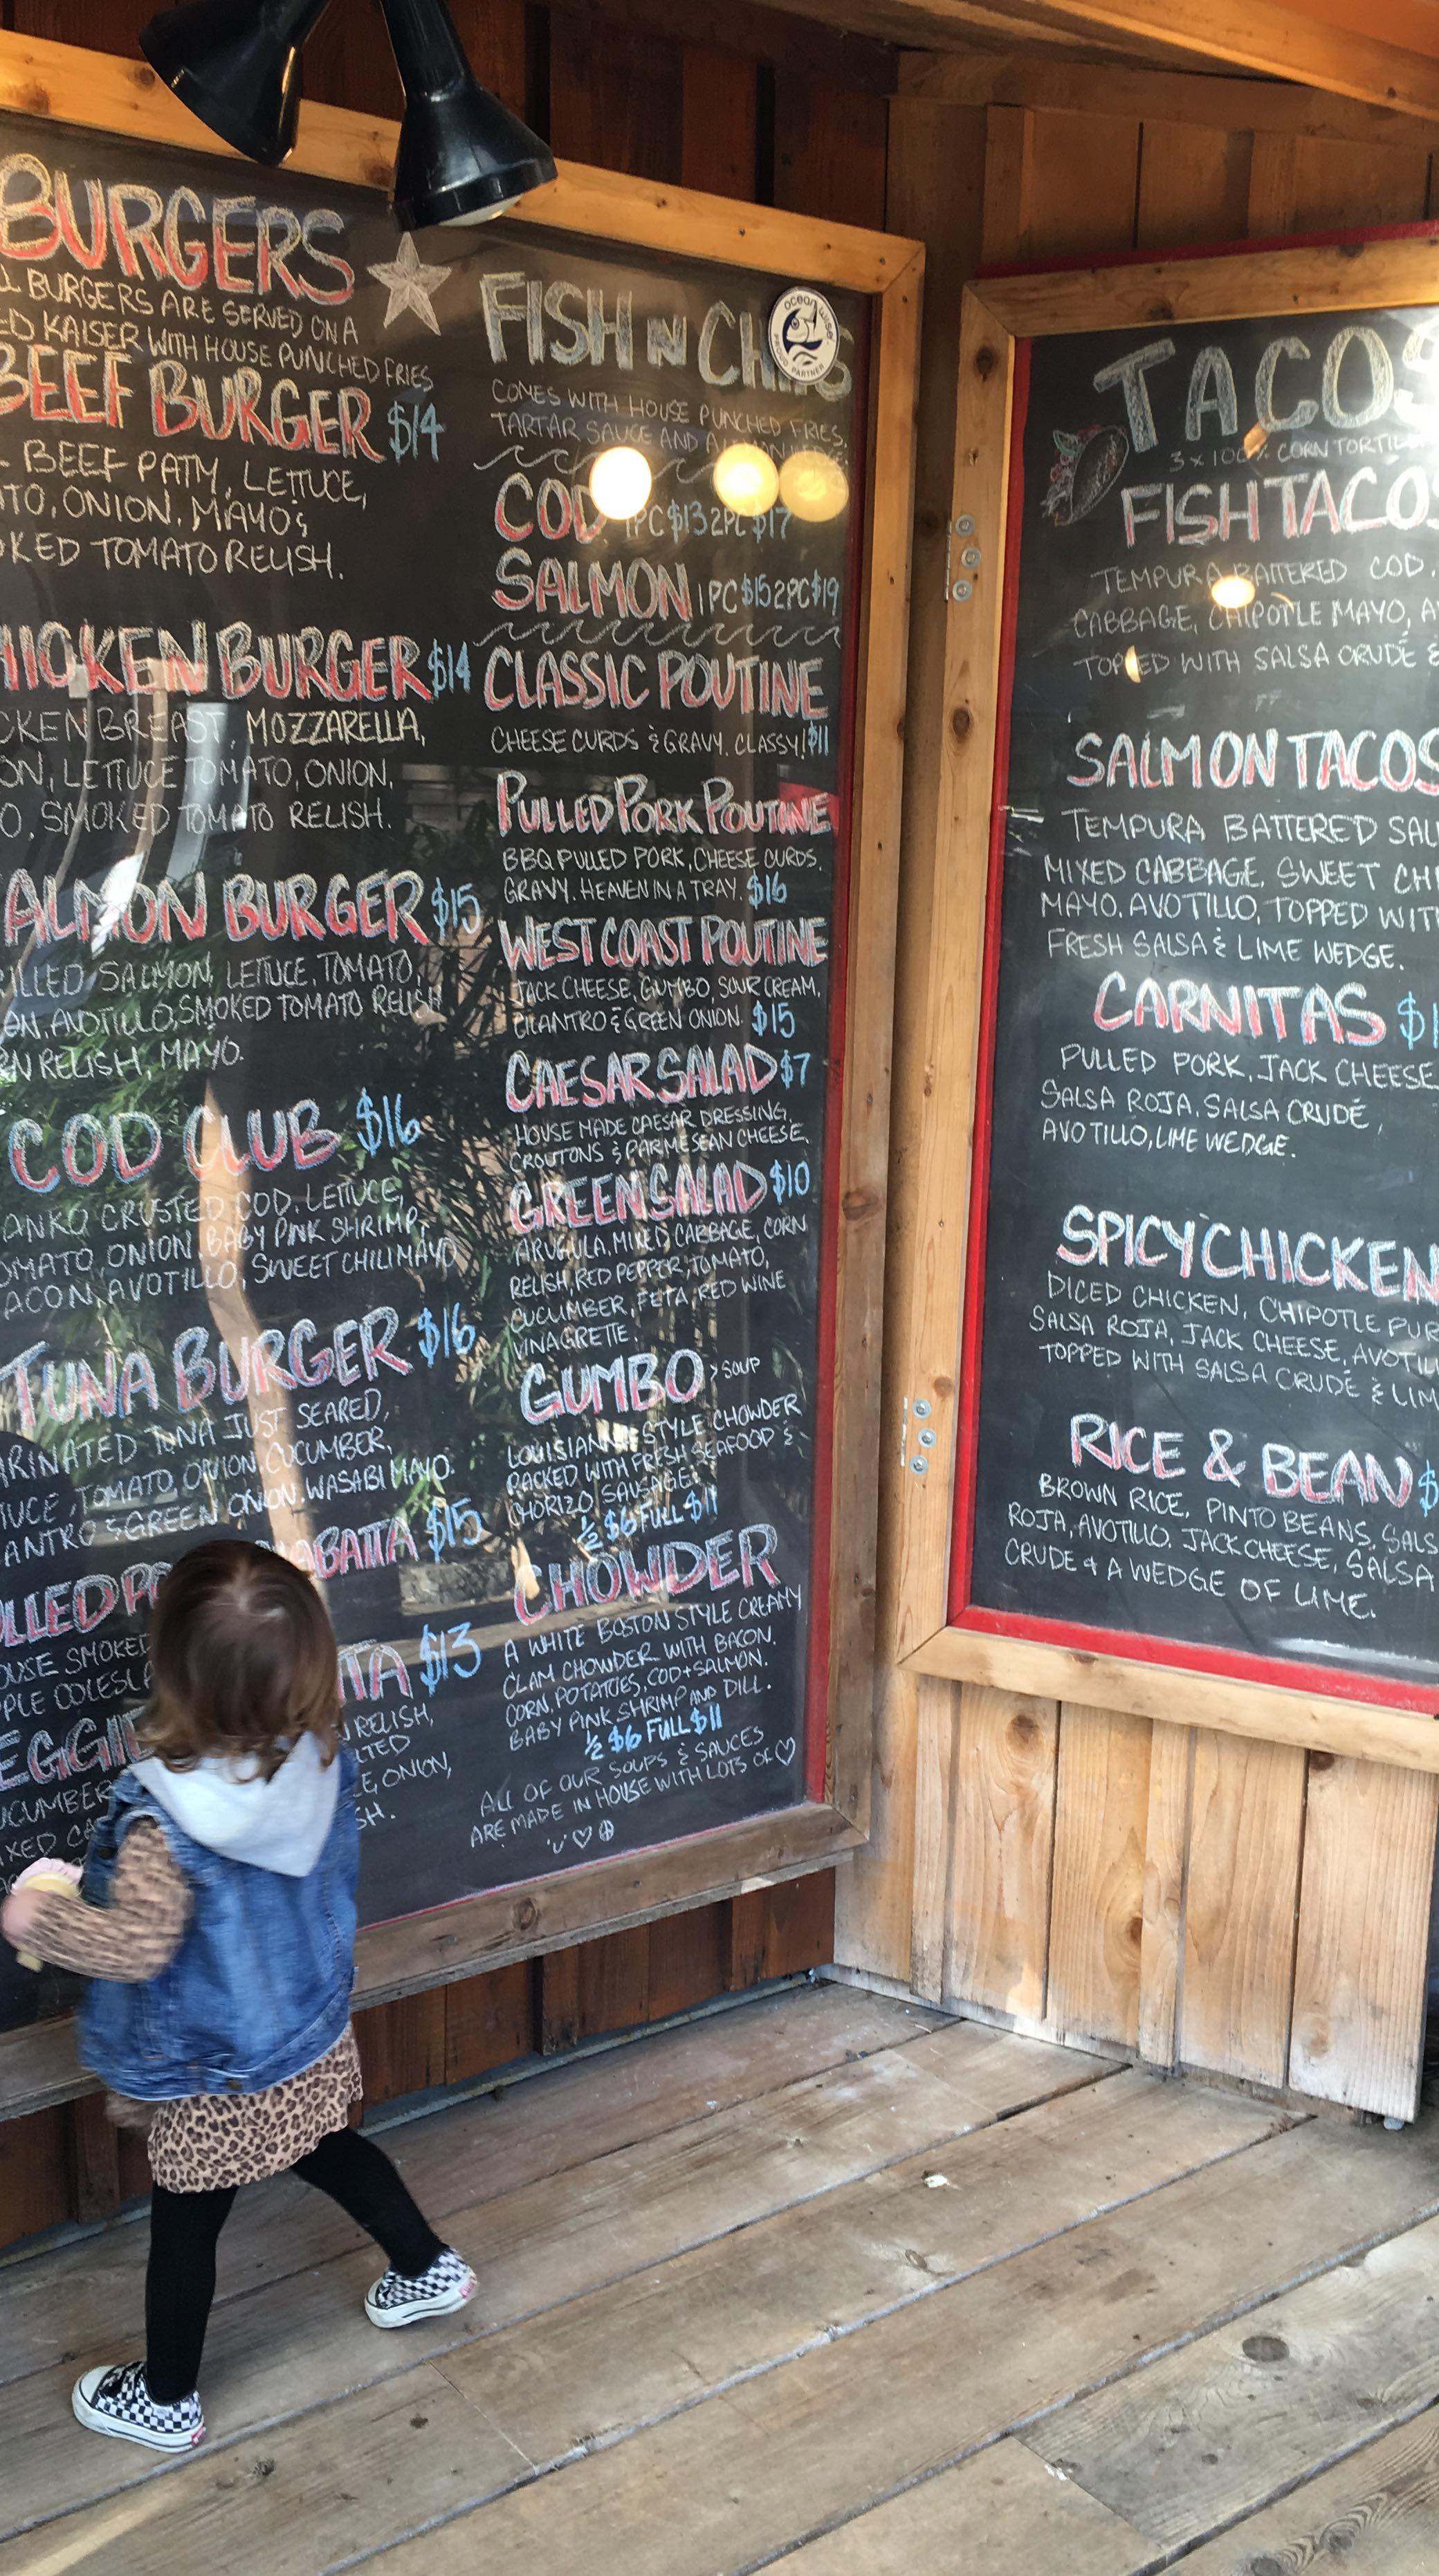 BURGERS
BURGERS ARE SERVED ON A
KAISER WITH HOUSE PUNCHED FRIES
BEEF BURGER $14
BEEF PATTY, LETTUCE,
ONION, MAYO &
TOMATO RELISH.
BURGER $14
BREAST, MOZZARELLA,
LETTUCE TOMATO, ONION,
SMOKED TOMATO RELISH.
BURGER $15
SALMON, LETTUCE, TOMATO,
AVOTILLO, SMOKED TOMATO RELISH
RELISH, MAYO.
COD CLUB $16
CRUSTED COD, LETTUCE,
ONION, BABY PINK SHRIMP,
AVOTILLO, SWEET CHILI MAYO
TUNA BURGER $16
TUNA JUST SEARED,
TOMATO, ONION, CUCUMBER,
& GREEN ONION, WASABI MAYO.
$15
SMOKED
$13
RELISH,
ONION,
FISH N CHIPS
ocean wise
PARTNER
COMES WITH HOUSE PUNCHED FRIES,
TARTAR SAUCE AND
COD 1PC $13 2PC $17
SALMON 1PC $15 2PC $19
CLASSIC POUTINE
CHEESE CURDS & GRAVY. CLASSY! $11
PULLED PORK POUTINE
BBQ PULLED PORK, CHEESE CURDS,
GRAVY. HEAVEN IN A TRAY. $16
WEST COAST POUTINE
JACK CHEESE, GUMBO, SOUR CREAM,
CILANTRO & GREEN ONION. $15
CAESAR SALAD $7
HOUSE MADE CAESAR DRESSING,
CROUTONS & PARMESEAN CHEESE,
GREEN SALAD $10
ARUGULA, MIXED CABBAGE, CORN
RELISH, RED PEPPER, TOMATO,
CUCUMBER, FETA, RED WINE
VINAGRETTE.
GUMBO > SOUP
LOUISIANNA STYLE CHOWDER
PACKED WITH FRESH SEAFOOD &
CHORIZO SAUSAGE.
½ $6 FULL $11
CHOWDER
A WHITE BOSTON STYLE CREAMY
CLAM CHOWDER WITH BACON.
CORN, POTATOES, COD + SALMON.
BABY PINK SHRIMP AND DILL.
½ $6 FULL $11
ALL OF OUR SOUPS & SAUCES
ARE MADE IN HOUSE WITH LOTS OF ♡
TACOS
3 x 100% CORN
FISH TACOS
TEMPURA BATTERED COD,
CABBAGE, CHIPOTLE MAYO,
TOPPED WITH SALSA CRUDÉ &
SALMON TACOS
TEMPURA BATTERED
MIXED CABBAGE, SWEET
MAYO, AVOTILLO, TOPPED WITH
FRESH SALSA & LIME WEDGE.
CARNITAS
PULLED PORK, JACK CHEESE
SALSA ROJA, SALSA CRUDÉ,
AVOTILLO, LIME WEDGE.
SPICY CHICKEN
DICED CHICKEN, CHIPOTLE
SALSA ROJA, JACK CHEESE,
TOPPED WITH SALSA CRUDÉ &
RICE & BEAN
BROWN RICE, PINTO BEANS,
ROJA, AVOTILLO, JACK CHEESE, SALSA
CRUDE & A WEDGE OF LIME.